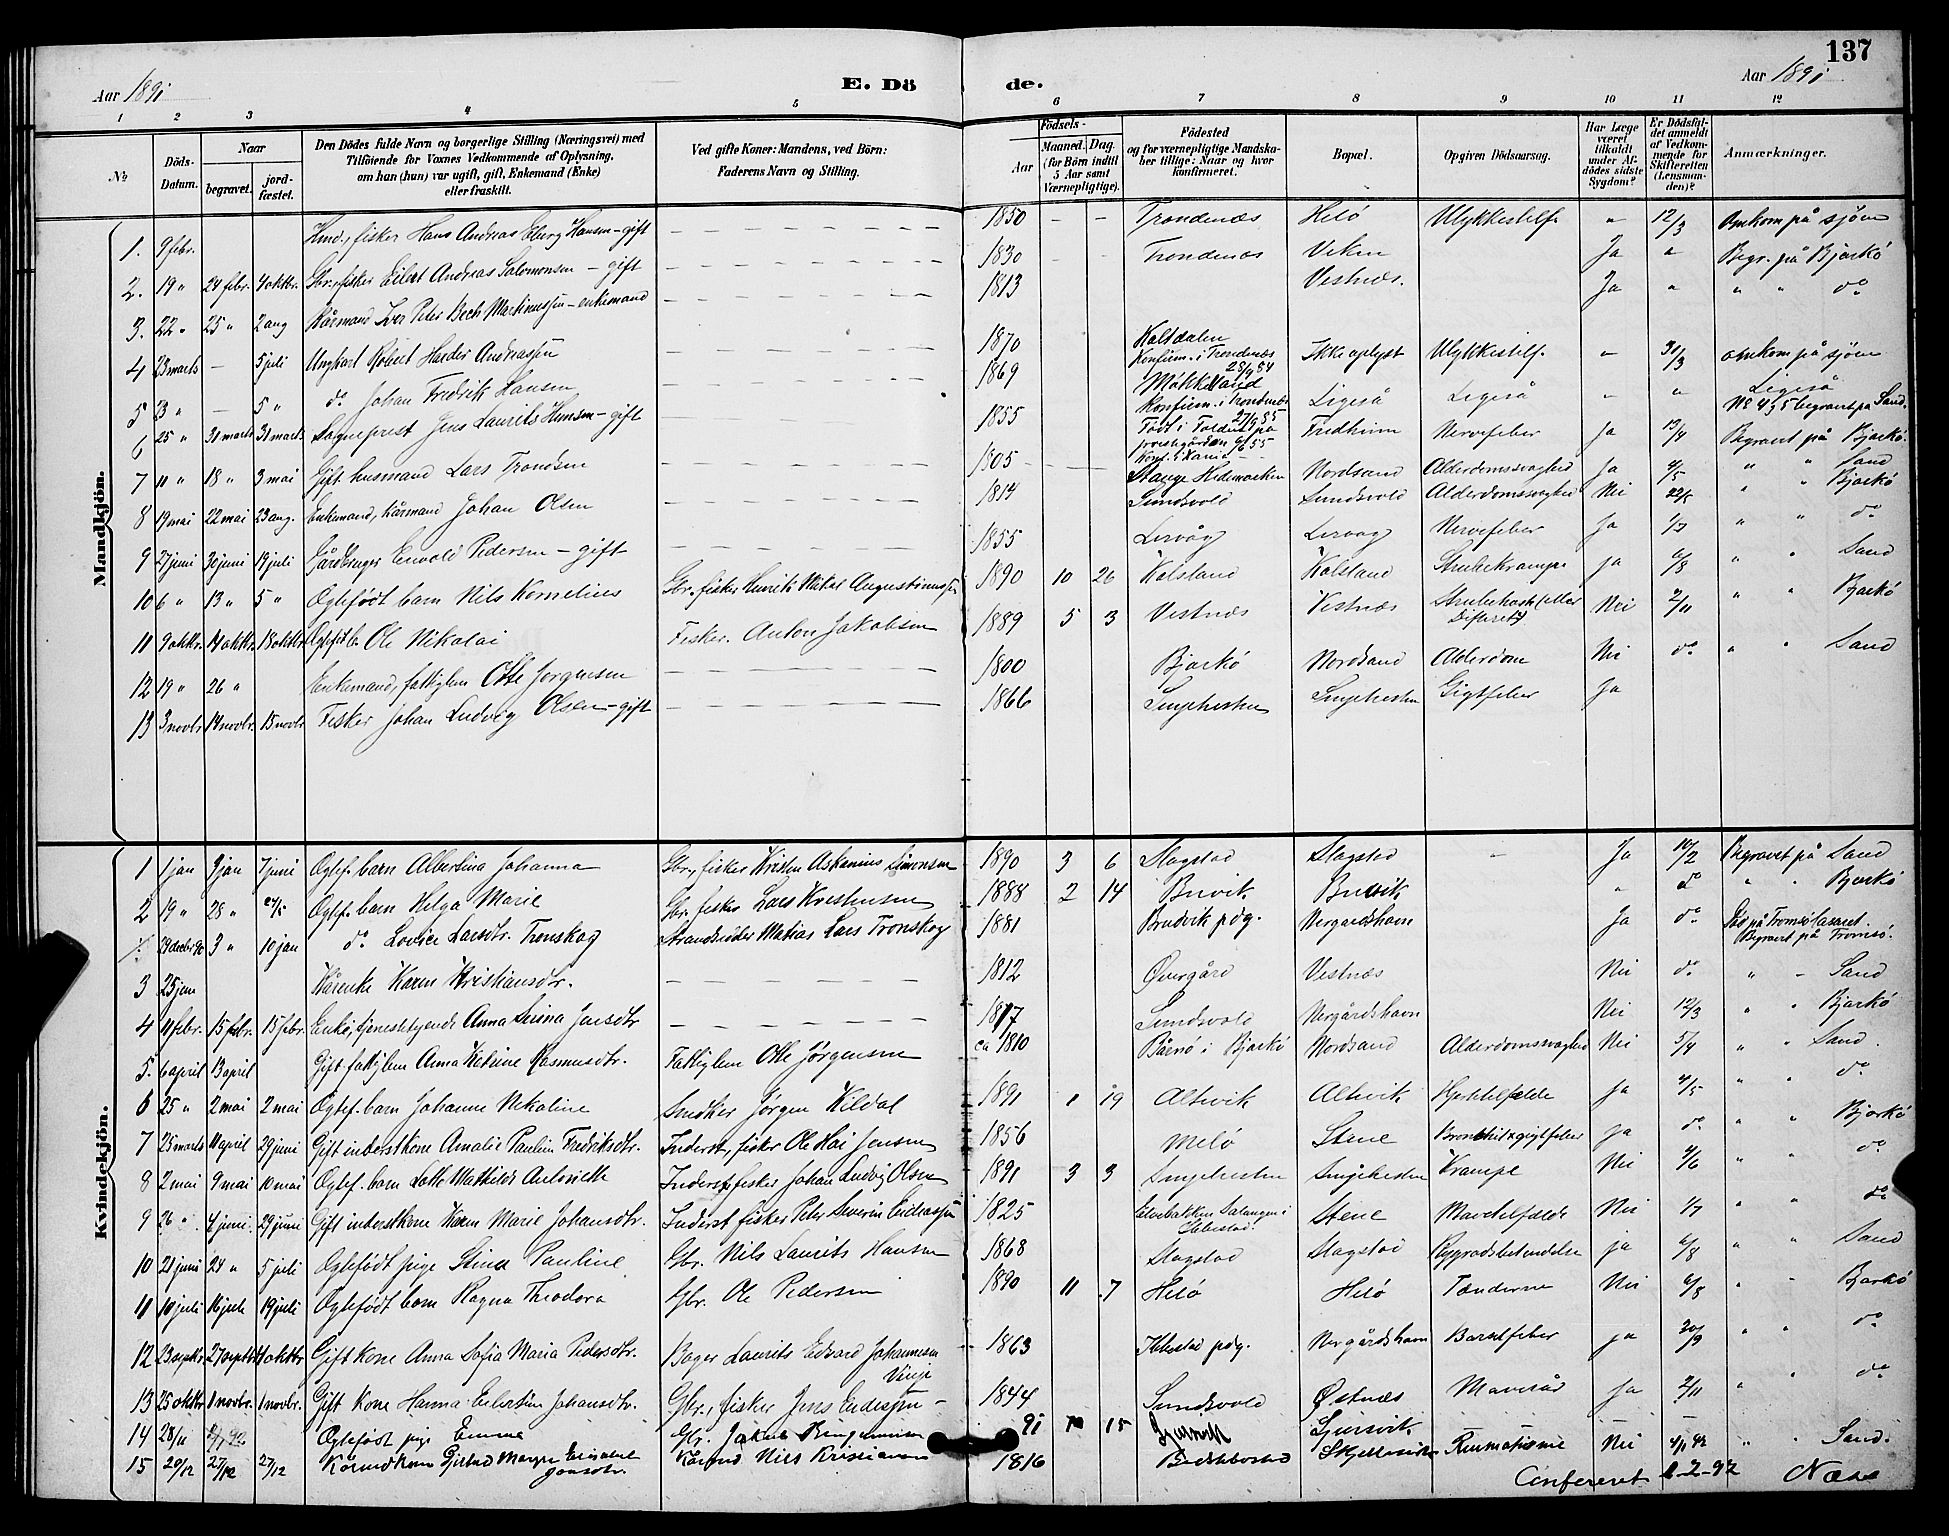 137
Aar 1891
E. Döde.
Aar 1891
1 2 3 4 5 6 7 8 9 10 11 12
No
Döds-Datum.
Naar
begravet.
jord-fæstet.
Den Dödes fulde Navn og borgerlige Stilling (Næringsvei) med
Tilföiende for Voxnes Vedkommende af Oplysning,
om han (hun) var ugift, gift, Enkemand (Enke)
eller fraskilt.
Ved gifte Koner: Mandens, ved Börn:
Faderens Navn og Stilling.
Födsels-
Aar
Maaned. Dag.
(for Börn indtil 5 Aar samt Værnepligtige).
Födested
og for værnepligtige Mandska-
ber tillige: Naar og hvor
konfirmeret.
Bopæl.
Opgiven Dödsaarsag.
Har Læge været tilkaldt under Af-dödes sidste Sygdom?
Er Dödsfal-det anmeldt af Vedkom-mende for Skifteretten (Lensman-den)?
Anmærkninger.
Mandkjön.
1. 9 febr. Hmd., fisker Hans Andreas Eberg Hansen - gift 1850 - - Trondenæs Helö Ulykkestilf. " 12/3 Omkom på sjöen
2. 19 " 24 febr. 4 oktbr. Gbr., fisker Eilert Andreas Salomonsen - gift 1830 - - Trondenæs Viken Ja " Begr. på Bjarkö
3. 22 " 25 " 2 aug Kårmand Iver Peter Bech Martinussen - enkemand 1813 Vestnæs. Ja " " " do
4 23 marts - 5 juli Ungkarl Robert Harder Andreassen 1870 Kaltdalen Konfirm. i Trondenæs 28/9 84 Ikke oplyst Ulykkestilf. " 31/3 omkom på sjöen
5 23 " - 5 " do Johan Fredrik Hansen 1869 Mökkeland Konfirm. i Trondenæs 27/9 85 Ligeså Ligeså " " Ligeså No 4 & 5 begravet på Sand.
6 25 " 31 marts 31 marts Sogneprest Jens Laurits Hansen - gift 1855 Födt i prestegården 6/6 55 Fredheim Nervefeber Ja 13/4 Begravet på Bjarkö.
7 11 " 18 " 3 mai Gift husmand Lars Trondsen 1805 - - Stange Hedemarken Nordsand Alderdomssvaghed Ja 4/5 " " Sand
8 19 mai 22 mai 23 aug. Enkemand, kårmand Johan Olsen 1814 Sundsvold Sundsvold Alderdomssvaghed Nei 22/5 " " Bjarkö
9 27 juni 30 juni 19 juli Gårdbruger Enevold Pedersen - gift 1855 Lervåg Lervåg Nervefeber Ja 1/7 " " do
10 6 " 13 " 5 " Ægtefödt barn Nils Kornelius Gbr., fisker Henrik Mikal Augustinussen 1890 10 26 Kalsland Kalsland Strubekrampe Ja 6/8 " " Sand
11 9 oktbr. 14 oktbr. 18 oktbr. Ægtefödt b. Ole Nikolai Fisker. Anton Jakobsen 1889 5 3 Vestnæs Vestnæs Strubehoste (eller Difterit) Nei 2/11 " " Bjarkö
12 19 " 26 " Enkemand, fattiglem Otte Jörgensen 1800 Bjarkö Nordsand Alderdom Nei do " " Sand
13 3 novbr 14 novbr. 15 novbr. Fisker Johan Ludvig Olsen - gift 1866 Gigtfeber Ja
Kvindekjön.
1 1 jan 9 jan 7 juni Ægtef. barn Albertina Johanna Gbr., fisker Kristen Askanius Simonsen 1890 3 6 Slagstad Slagstad - Ja 10/2 Begravet på Sand
2 19 " 28 " Ægtef. barn Helga Marie Gbr. fisker Lars Kristensen 1888 2 14 Brivik Brivik " do " " Bjarkö
29 decbr 90 3 " 10 jan do Lovise Larsdtr. Tronskog Strandsidder Matias Lars Tronskog 1881 Brudvik pdg. Vergårdshavn Ja do Död på Tromsö lasaret. Begravet på Tromsö.
3 25 jan Kårenke Karen Kristiansdtr. 1812 Övergård Vestnæs Nei do " - Sand
4 11 febr. 15 febr. 15 febr. Enke, tjenestetyende Anna Sirina Jonsdtr 1817 Sundsvold Vergårdshavn Nei 12/3 " " Bjarkö
5. 6 april 13 april Gift fattiglem Anna Katrine Rasmusdtr. Fattiglem Otte Jörgensen ca 1810 i Bjarkö Nordsand Alderdomssvaghed Nei 5/4 " " Sand.
6 25 " 2 mai 2 mai Ægtef. barn Johanne Nikoline Snedker Jörgen Kildal 1891 1 19 Altevik Altevik Hjertetilfælde Ja 4/5 " " do
7 25 marts 11 april 29 juni Gift inderstkone Amalie Pauline Fredriksdtr. Inderst, fisker Ole Hai Jensen 1856 Melö Stene Bronkhit & gigtfeber ja do " " Bjarkö
8 2 mai 9 mai 10 mai Ægtef. barn Lotte Mathilde Antonette Inderst, fisker Johan Ludvig Olsen 1891 3 3 Krampe Nei 4/6 " " do
9 26 " 4 juni 29 juni Gift inderstkone Karen Marie Johansdtr. Inderst fisker Peter Severin Endresen 1825 Elvebakken Salangen i Ibbestad. Stene Mavetilfælde Nei 1/7 " " do
10 21 juni 24 " 5 juli Ægtefödt pige Stina Pauline Gbr. Nils Laurits Hansen 1868 Slagstad Slagstad Rygradsbetændelse ja 6/8 " " Sand
11 10 juli 16 juli 19 juli Ægtefödt barn Ragna Theodora Gbr. Ole Pedersen 1890 11 7 Helö Helö Tænderne Nei 6/8 " " Bjarkö
12 23 septbr. 27 septbr 4 oktbr Gift kone Anna Sofia Maria Pedersdtr. Bager Laurits Edvard Johannesen Vinje 1863 Ibbestad pdg. Vergårdshavn Barselfeber ja 30/9 " " do
13 25 oktbr 1 novbr. 1 novbr. Gift kone Hanna Elbertine Johansdtr. Gbr., fisker Jens Endresen - 1844 Sundsvold Östnæs Mavesår Ja 2/11 " " do
14 28/11 Ægtefödt pige Emma Gbr. Jakob 91 15 Gjersvik
15 20/12 27/12 27/12 Kårmdkone Kårmd Nils Kristiansen 1816 Reumatisme Nei 4/1 92 " " Sand.
Confereret 1-2-92 Næss